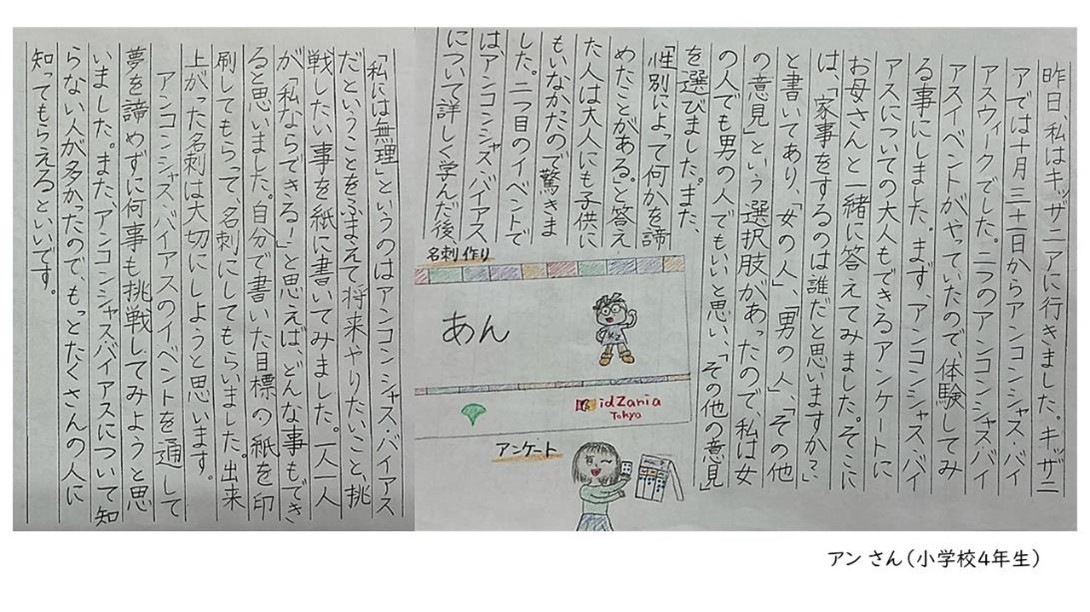 昨日、私はキッザニアに行きました。キッザニ
アでは十月三十一日からアンコンシャス・バイ
アスウィークでした。二つのアンコンシャスバイ
アスイベントがやっていたので、体験してみ
る事にしました。まず、アンコンシャス・バイ
アスについての大人もできるアンケートに
お母さんと一緒に答えてみました。そこに
は、「家事をするのは誰だと思いますか？」
と書いてあり、「女の人」、「男の人」、「その他
の意見」という選択肢があったので、私は女
の人でも男の人でもいいと思い、「その他の意見」
を選びました。また、
「性別によって何かを諦
めたことがある」と答え
た人は大人にも子供に
もいなかたので驚きま
した。二つ目のイベントで
は、アンコンシャス・バイアス
について詳しく学んだ後、
名刺作り
あん
KidZania
Tokyo
アンケート
「私には無理」というのはアンコンシャス・バイアス
だということをふまえて将来やりた、こと挑
戦したい事を紙に書いてみました。一人一人
が「私ならできるー」と思えば、どんな事もでき
ると思いました。自分で書いた目標の紙を印
刷してもらって、名刺にしてもらいました。出来
上がった名刺は大切にしようと思います。
アンコンシャス・バイアスのイベントを通して
夢を諦めずに何事も挑戦してみようと思
いました。また、アンコンシャス・バイアスについて知
らない人が多かったので、もっとたくさんの人に
知ってもらえるといいです。
アン さん（小学校4年生）